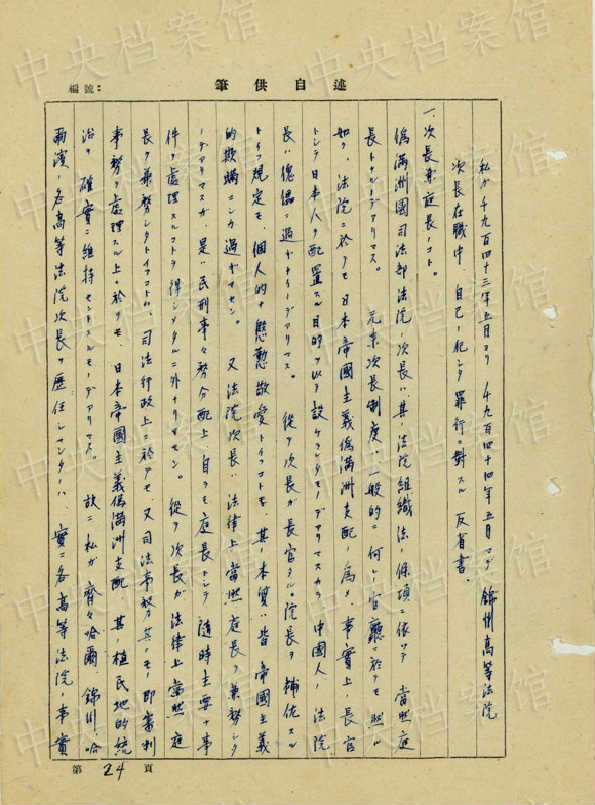 編號:
筆供自述
私ガ千九百四十三年五月ヨリ千九百四十四年五月マデ錦州高等法院
次長在職中自己ノ犯シタ罪行ニ對スル反省書.
一.次長兼庭長ノコト。
偽満洲國司法部法院ノ次長ハ其ノ法院組織法ノ條項ニ依ッテ當然庭
長トナルノデアリマス。元来次長制度ハ一般的ニ何レノ官廳ニ於テモ然ル
如ク、法院ニ於テモ日本帝國主義偽満洲支配ノ為メ、事實上ノ長官
トシテ日本人ヲ配置スル目的ヲ以テ設ケラレタモノデアリマスカラ中國人ノ法院
長ハ傀儡ニ過ギナイノデアリマス。従テ次長ガ長官タル院長ヲ補佐スル
トイフ規定モ、個人的ナ慇懃敬愛トイフコトモ、其ノ本質ハ皆帝國主義
的欺瞞ニシカ過ギマセン。又法院次長ハ法律上當然庭長ヲ兼務シタ
ノデアリマスガ、是ハ民刑事々務分配上自ラモ庭長トシテ随時主要ナ事
件ヲ處理スルコトヲ得シメタルニ外ナリマセン。従テ次長ガ法律上當然庭
長ヲ兼務シタトイフコトハ、司法行政上ニ於テモ又司法事務其ノモノ即審判
事務ヲ處理スル上ニ於テモ、日本帝國主義偽満洲支配其ノ植民地的統
治ヲ確實ニ維持セントスルモノデアリマシタ。故ニ私ガ齊々哈爾、錦州、哈
爾濱ノ各高等法院次長ヲ歴任シマシタノハ、實ニ各高等法院ノ事實
第24頁
中央档案馆